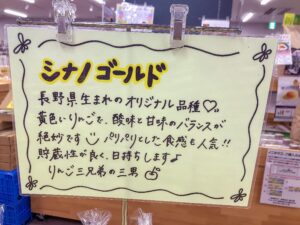 シナノゴールド
長野県生まれのオリジナル品種♡。
黄色いりんごで、酸味と甘味のバランスが
絶妙です パリパリとした食感も人気!!
貯蔵性が良く、日持ちします♪
りんご三兄弟の三男